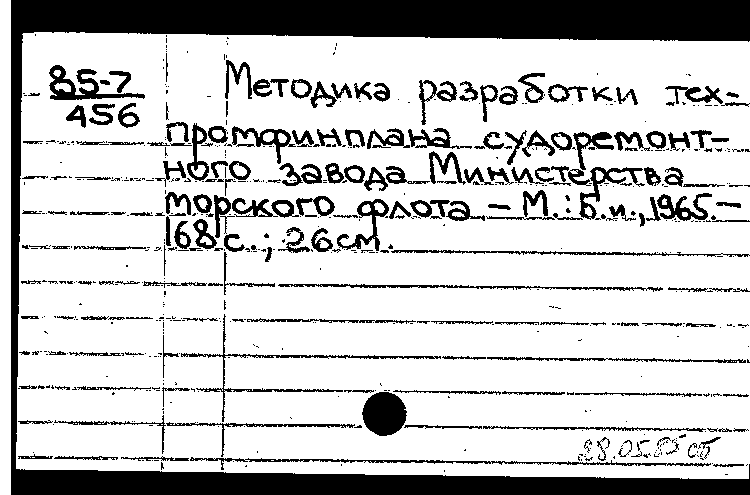 85-7
456
Методика разработки тех-
промфинплана судоремонт-
ного завода Министерства
морского флота. - М.: Б.и., 1965.-
168 с.; 26 см.
28.05.85